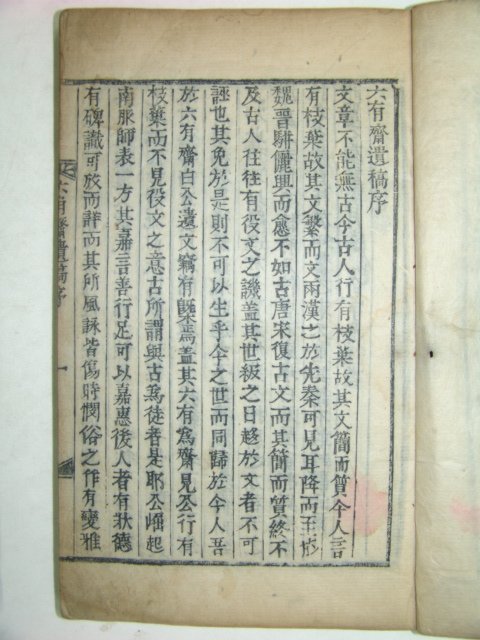 六有齋遺稿序
文章不能無古今古人行有枝葉故其文簡而質今人言
有枝葉故其文繁而文兩漢之於先秦可見耳降而至於
魏晋騈儷興而愈不如古唐宋復古文而其簡而質終不
及古人往往有役文之譏盖其世級之日趍於文者不可
誣也其免於是則不可以生乎今之世而同歸於今人吾
於六有齋白公遺文竊有慨焉盖其六有爲齋見公行有
枝葉而不見役文之意古所謂與古爲徒者是耶公崛起
南服師表一方其嘉言善行足可以嘉惠後人者有狀德
有碑識可攷而詳而其所風詠皆傷時憫俗之作有變雅
六有齋遺稿序
一